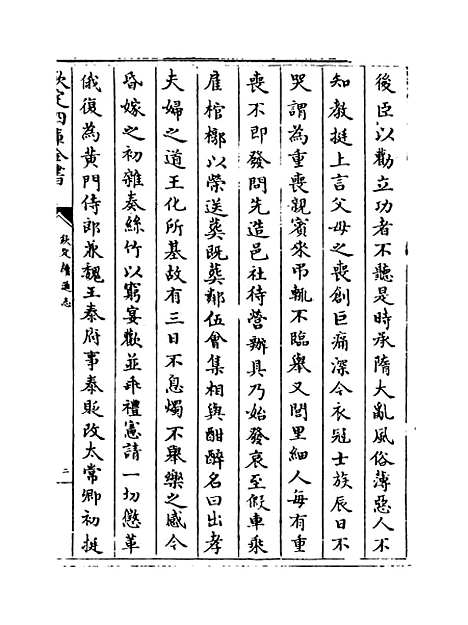 後臣以勸立功者不聽是時承隋大亂風俗薄惡人不
知教挺上言父母之喪創巨痛深今衣冠士族辰日不
哭謂為重喪親賓來弔輒不臨舉又閭里細人每有重
喪不即發問先造邑社待營辦具乃始發哀至假車乘
雇棺槨以榮送葬既葬鄰伍會集相與酣醉名曰出孝
夫婦之道王化所基故有三日不息燭不舉樂之感今
昏嫁之初雜奏絲竹以窮宴歡並乖禮憲請一切懲革
俄復為黃門侍郎兼魏王泰府事泰貶改太常卿初挺
欽定四庫全書
欽定續通志
二